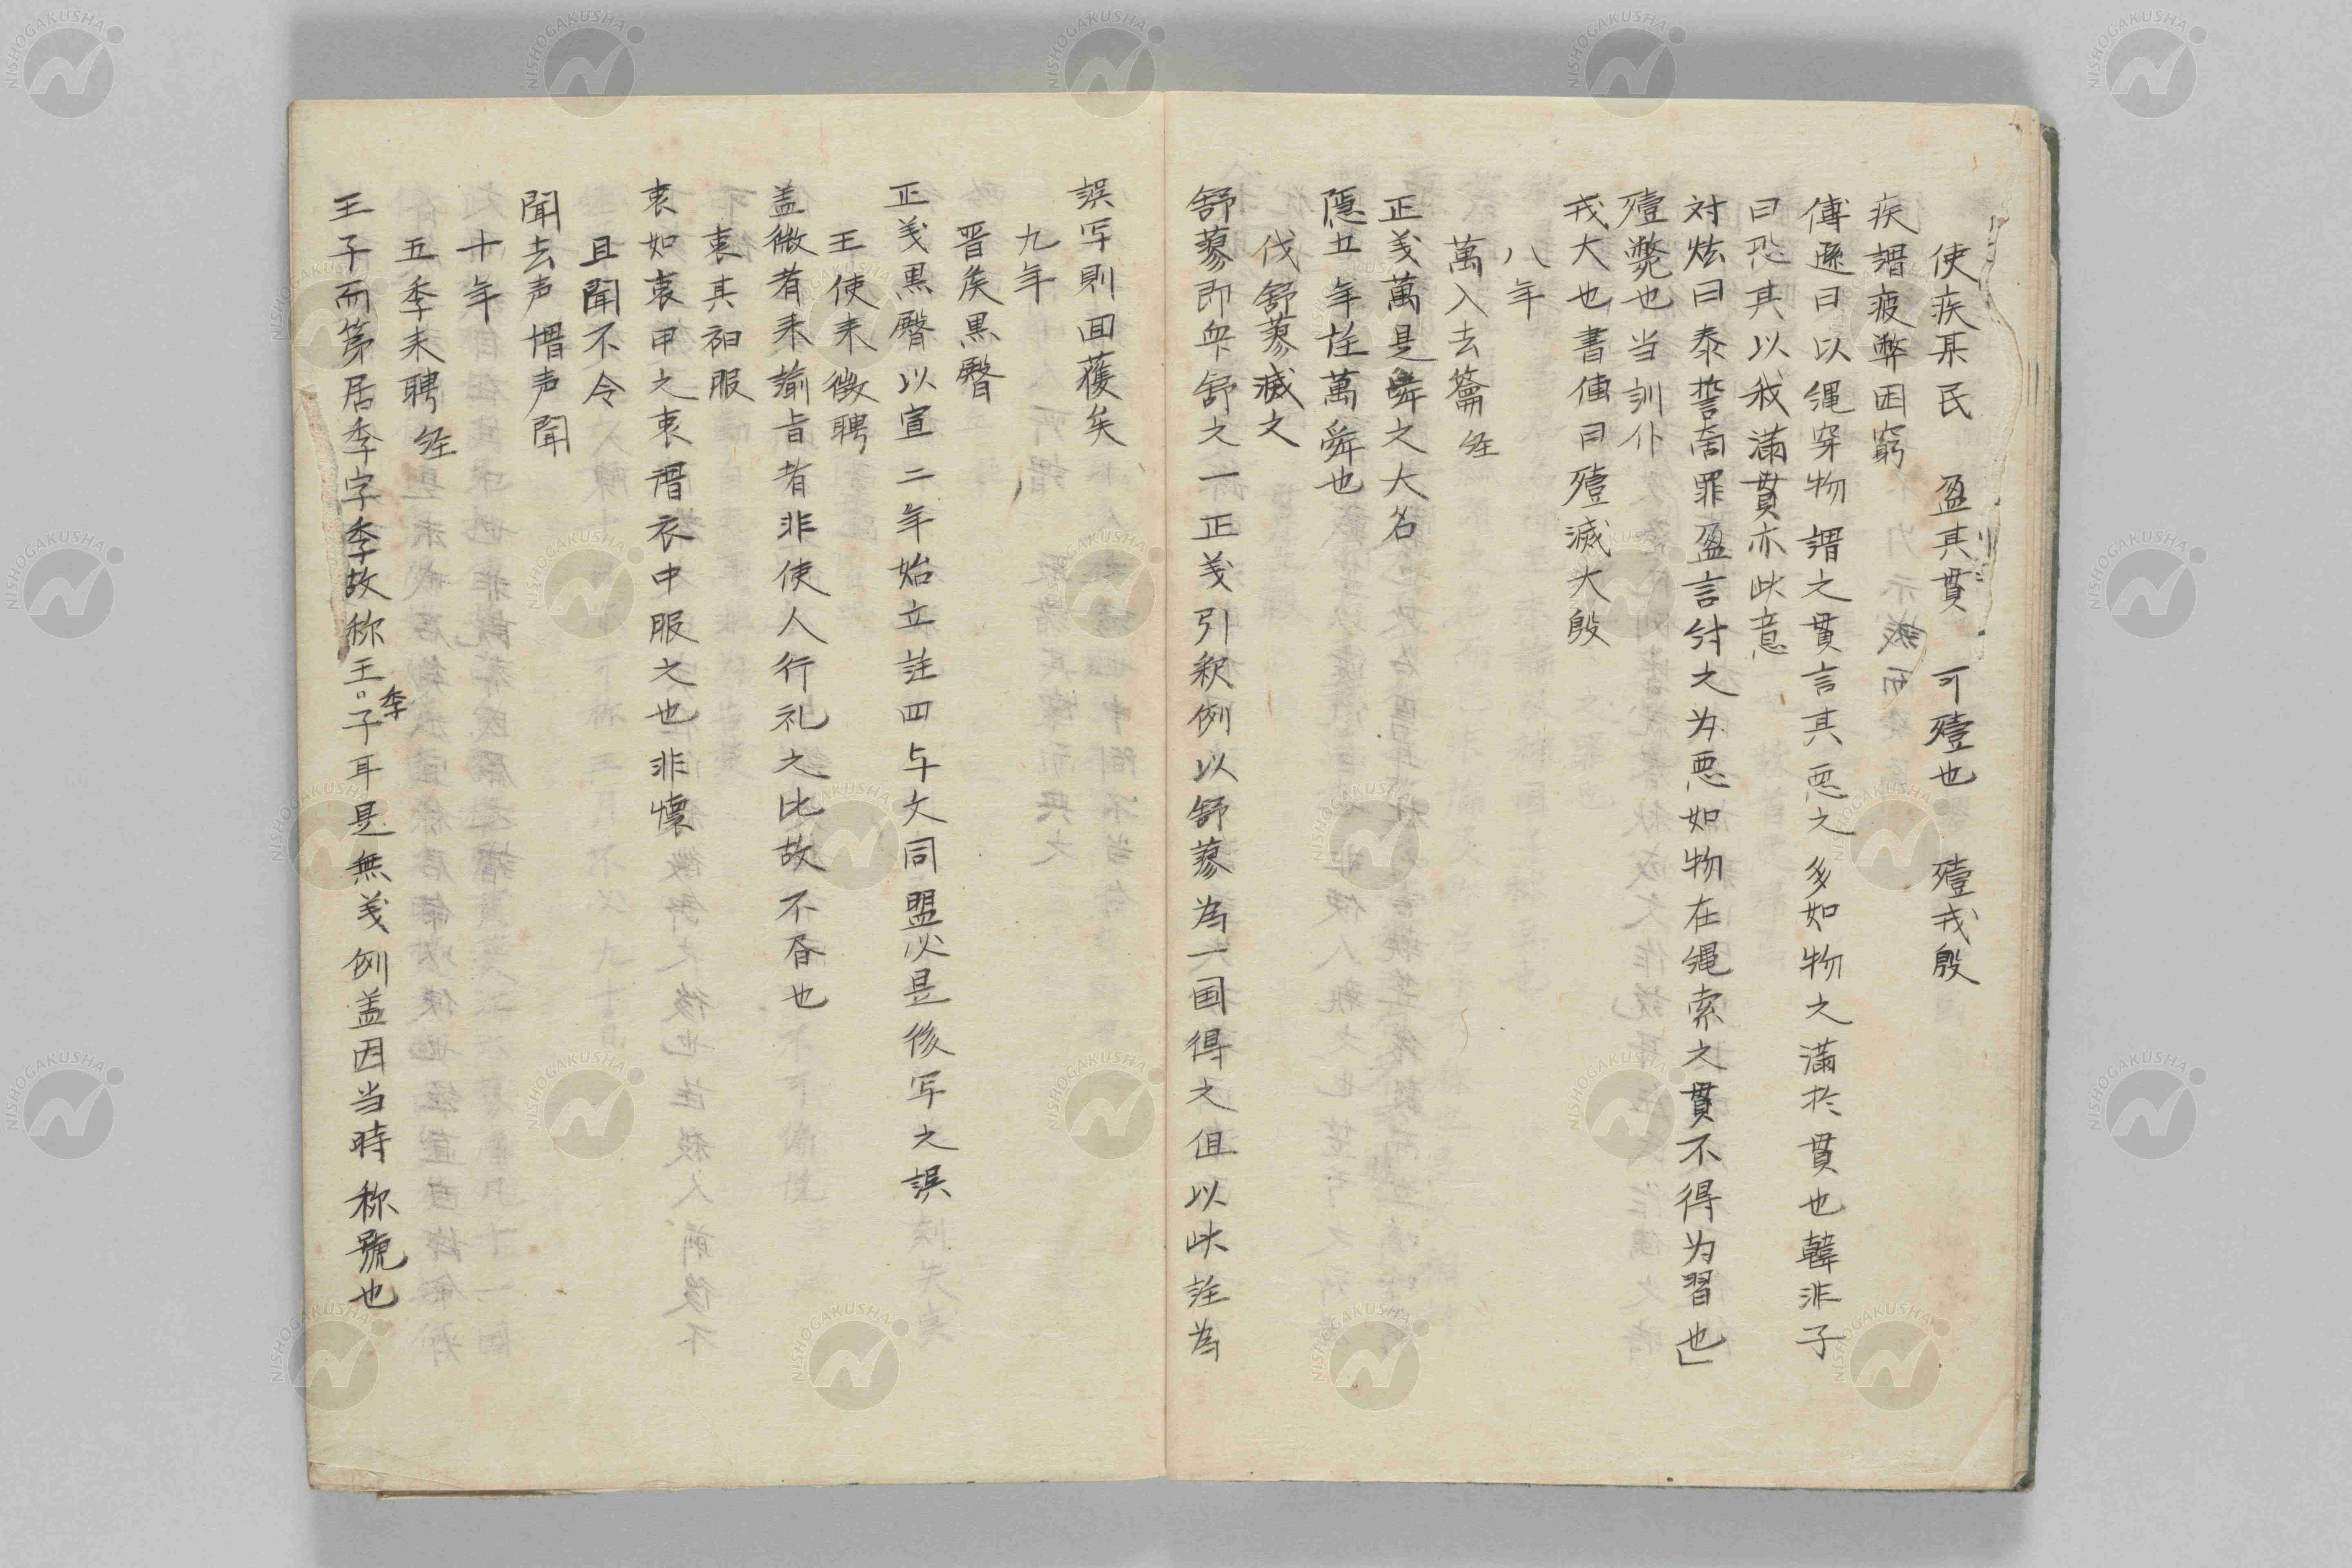 使疾其民　盈其貫　可殪也　殪戎殷
疾謂疲弊困窮
傅遜曰以绳穿物謂之貫言其悪之多如物之满於貫也韓非子
曰恐其以我満貫亦此意
対炫曰泰誓商罪盈言紂之为悪如物在绳索之貫不得为習也」
殪斃也当訓仆
戎大也書傳同殪滅大殷
八年
萬入去籥経
正義萬是舞之大名
隠五年註萬舞也
伐舒蓼滅之
舒蓼即舒之一正義引釈例以舒蓼為一国得之但以此註為
誤写則回護矣
九年
晋矦黒臀
正義黒臀以宣二年始立註四与文同盟必是後写之誤
王使来徴聘
盖微有来諭旨者非使人行礼之比故不書也
衷其衵服
衷如衷甲之衷謂衣中服之也非懐
且聞不令
聞去声譖声聞
十年
五季来聘経
王子而第居季字季故称王〃子季耳是無義例盖因当時称號也
NISHOGAKUSHA